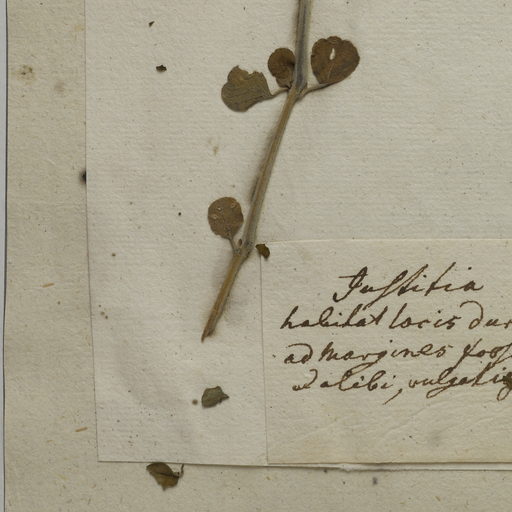 Justitia
habitat locis dur
ad margines foss
& alibi, vulgatiss